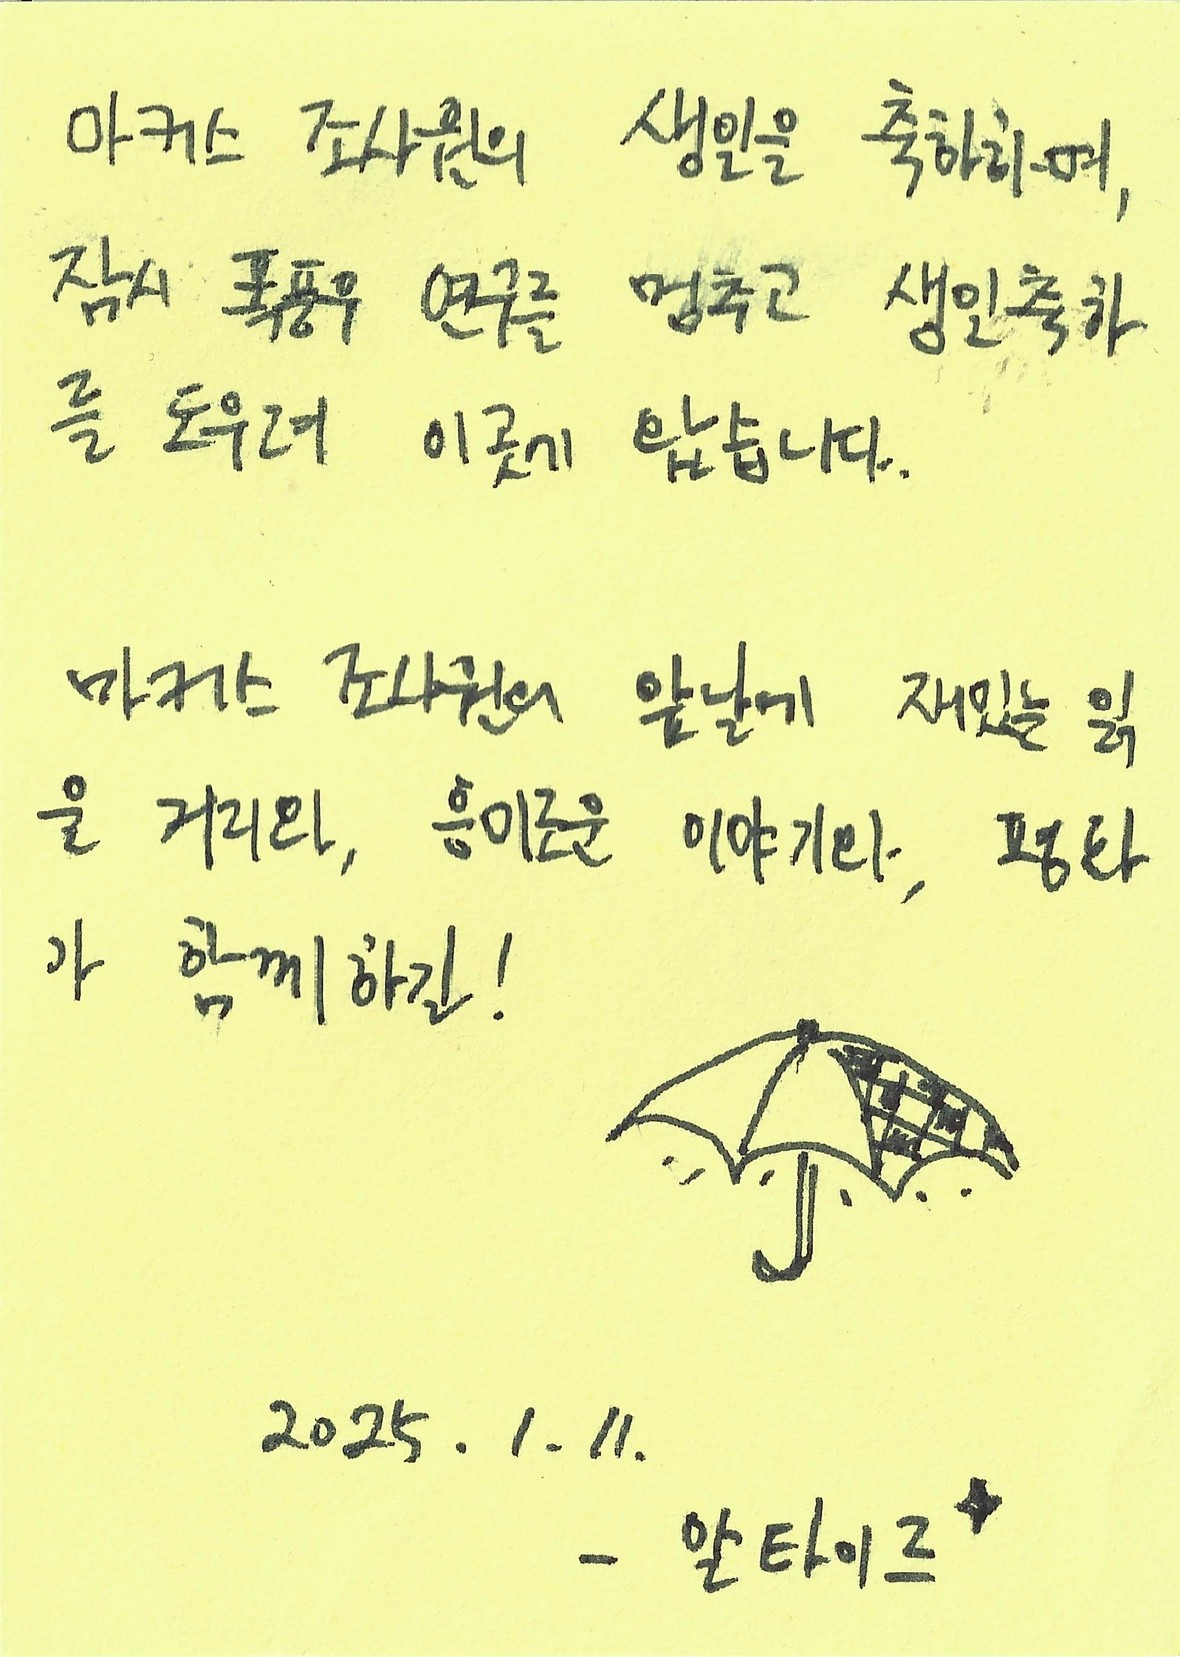 마커스 조사원의 생일을 축하하며,
잠시 폭풍우 연구를 멈추고 생일축하
를 도우러 이곳에 왔습니다.
마커스 조사원의 앞날에 재밌는 읽
을 거리와, 흥미로운 이야기와, 평화
가 함께하길!
2025. 1. 11.
- 알타이르